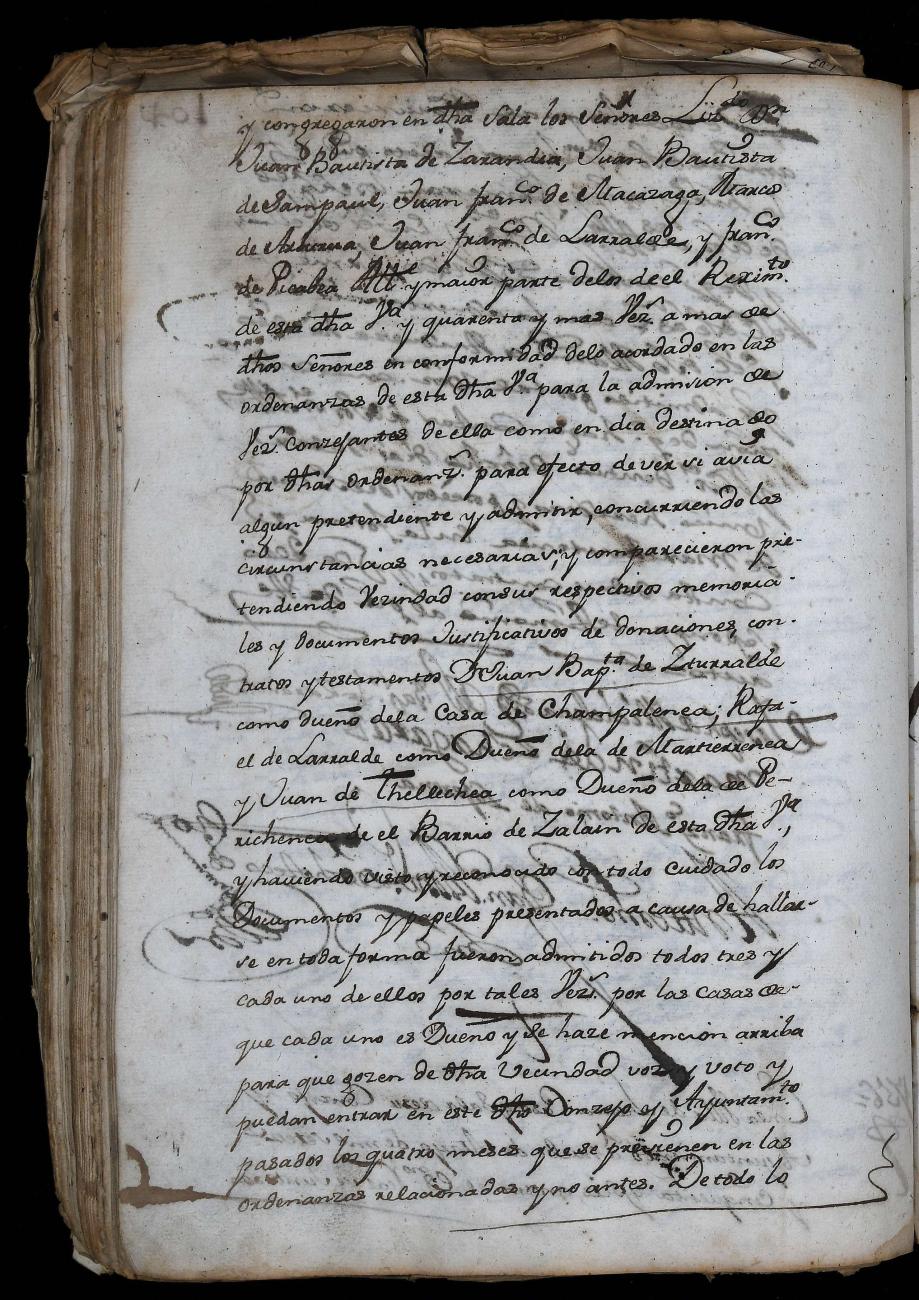 y congregaron en dha Sala los Señores Lizdo Dn
Juan Bautista de Zarandia, Juan Bautista
de Sampaul, Juan franco. de Macazaga, Marcos
de Juan franco. de Larralde, y franco
de Picabea Alte y maior parte delos de el Reximto
de esta dha Va. y quarenta y mas Vezs. a mas de
dhos Señores en conformidad delo acordado en las
ordenanzas de esta dha Va para la admision de
Vezs. conzejantes de ella como en dia destinado
por dhas ordenanzs. para efecto de ver si avia
algun pretendiente y admitir, concurriendo las
circunstancias necesarias; y comparecieron pre-
tendiendo Vezindad con sus respectivos memoria-
les y documentos Justificativos de donaciones, con-
tratos y testamentos Dn Juan Bapta. de Yturralde
como dueño dela Casa de Champalenea; Rafa-
el de Larralde como Dueño dela de Martierrenea
y Juan de Thellechea como Dueño dela de Pe-
richenea de el Barrio de Zalain de esta dha Va,
y haviendo visto y reconocido con todo cuidado los
Documentos y papeles presentados a causa de hallar-
se en toda forma fueron admitidos todos tres y
cada uno de ellos por tales Vezs. por las casas de
que cada uno es Dueño y se haze mencion arriba
para que gozen de dha vecindad voz, y voto y
puedan entrar en este dho Conzejo y Ayuntamto
pasados los quatro meses que se previenen en las
ordenanzas relacionadas y no antes. De todo lo